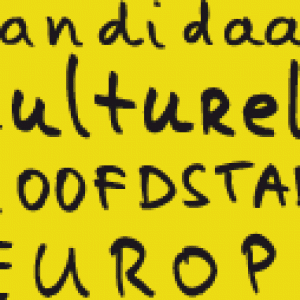 andidaa
ulturel
OOFDSTA
EUROP